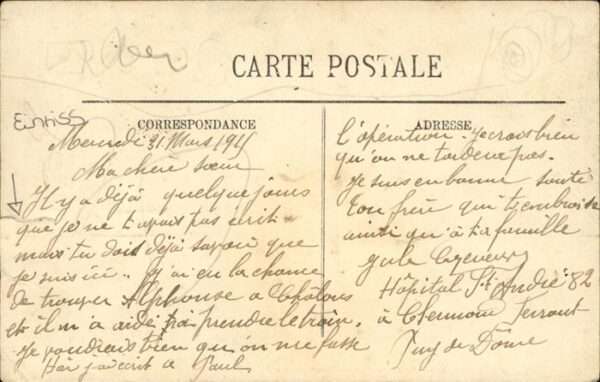 CARTE POSTALE
CORRESPONDANCE
Mercredi 31 Mars 1915
Ma chère sœur
Il y a déjà quelque jours
que je ne t'avais pas écrit
mais tu dois déjà savoir que
je suis ici. J'ai eu la chance
de trouver Alphonse a Châlons
et il m'a aidé pr prendre le train.
Je voudrais bien qu'on me fasse
Hier j'ai écrit a Paul
ADRESSE
l'opération. Je crois bien
qu'on ne tardera pas.
Je suis en bonne santé
Ton frère qui t'embrasse
ainsi qu'à ta famille
Hôpital St André 82
à Clermont Ferrant
Puy de Dôme